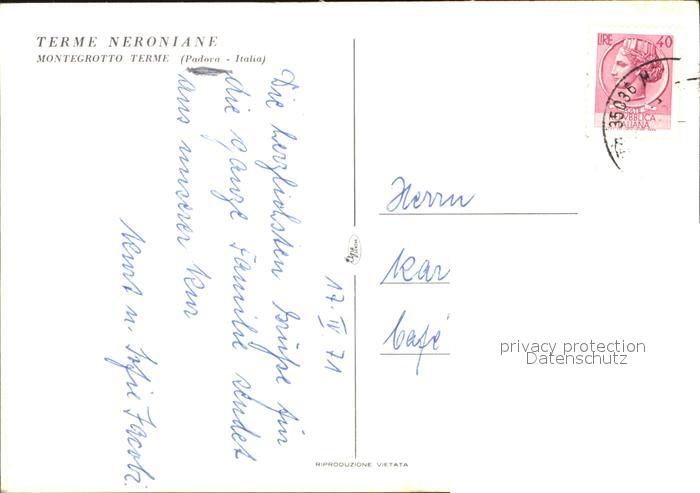 TERME NERONIANE
MONTEGROTTO TERME (Padova - Italia)
Die herzlichsten Grüße für
die ganze Familie sendet
aus unserer Kur
Kurt u. Sofie Jacobi.
17. IV 71
RIPRODUZIONE VIETATA
LIRE 40
REPUBBLICA
ITALIANA
35036
Herrn
Kar
Café
privacy protection
Datenschutz